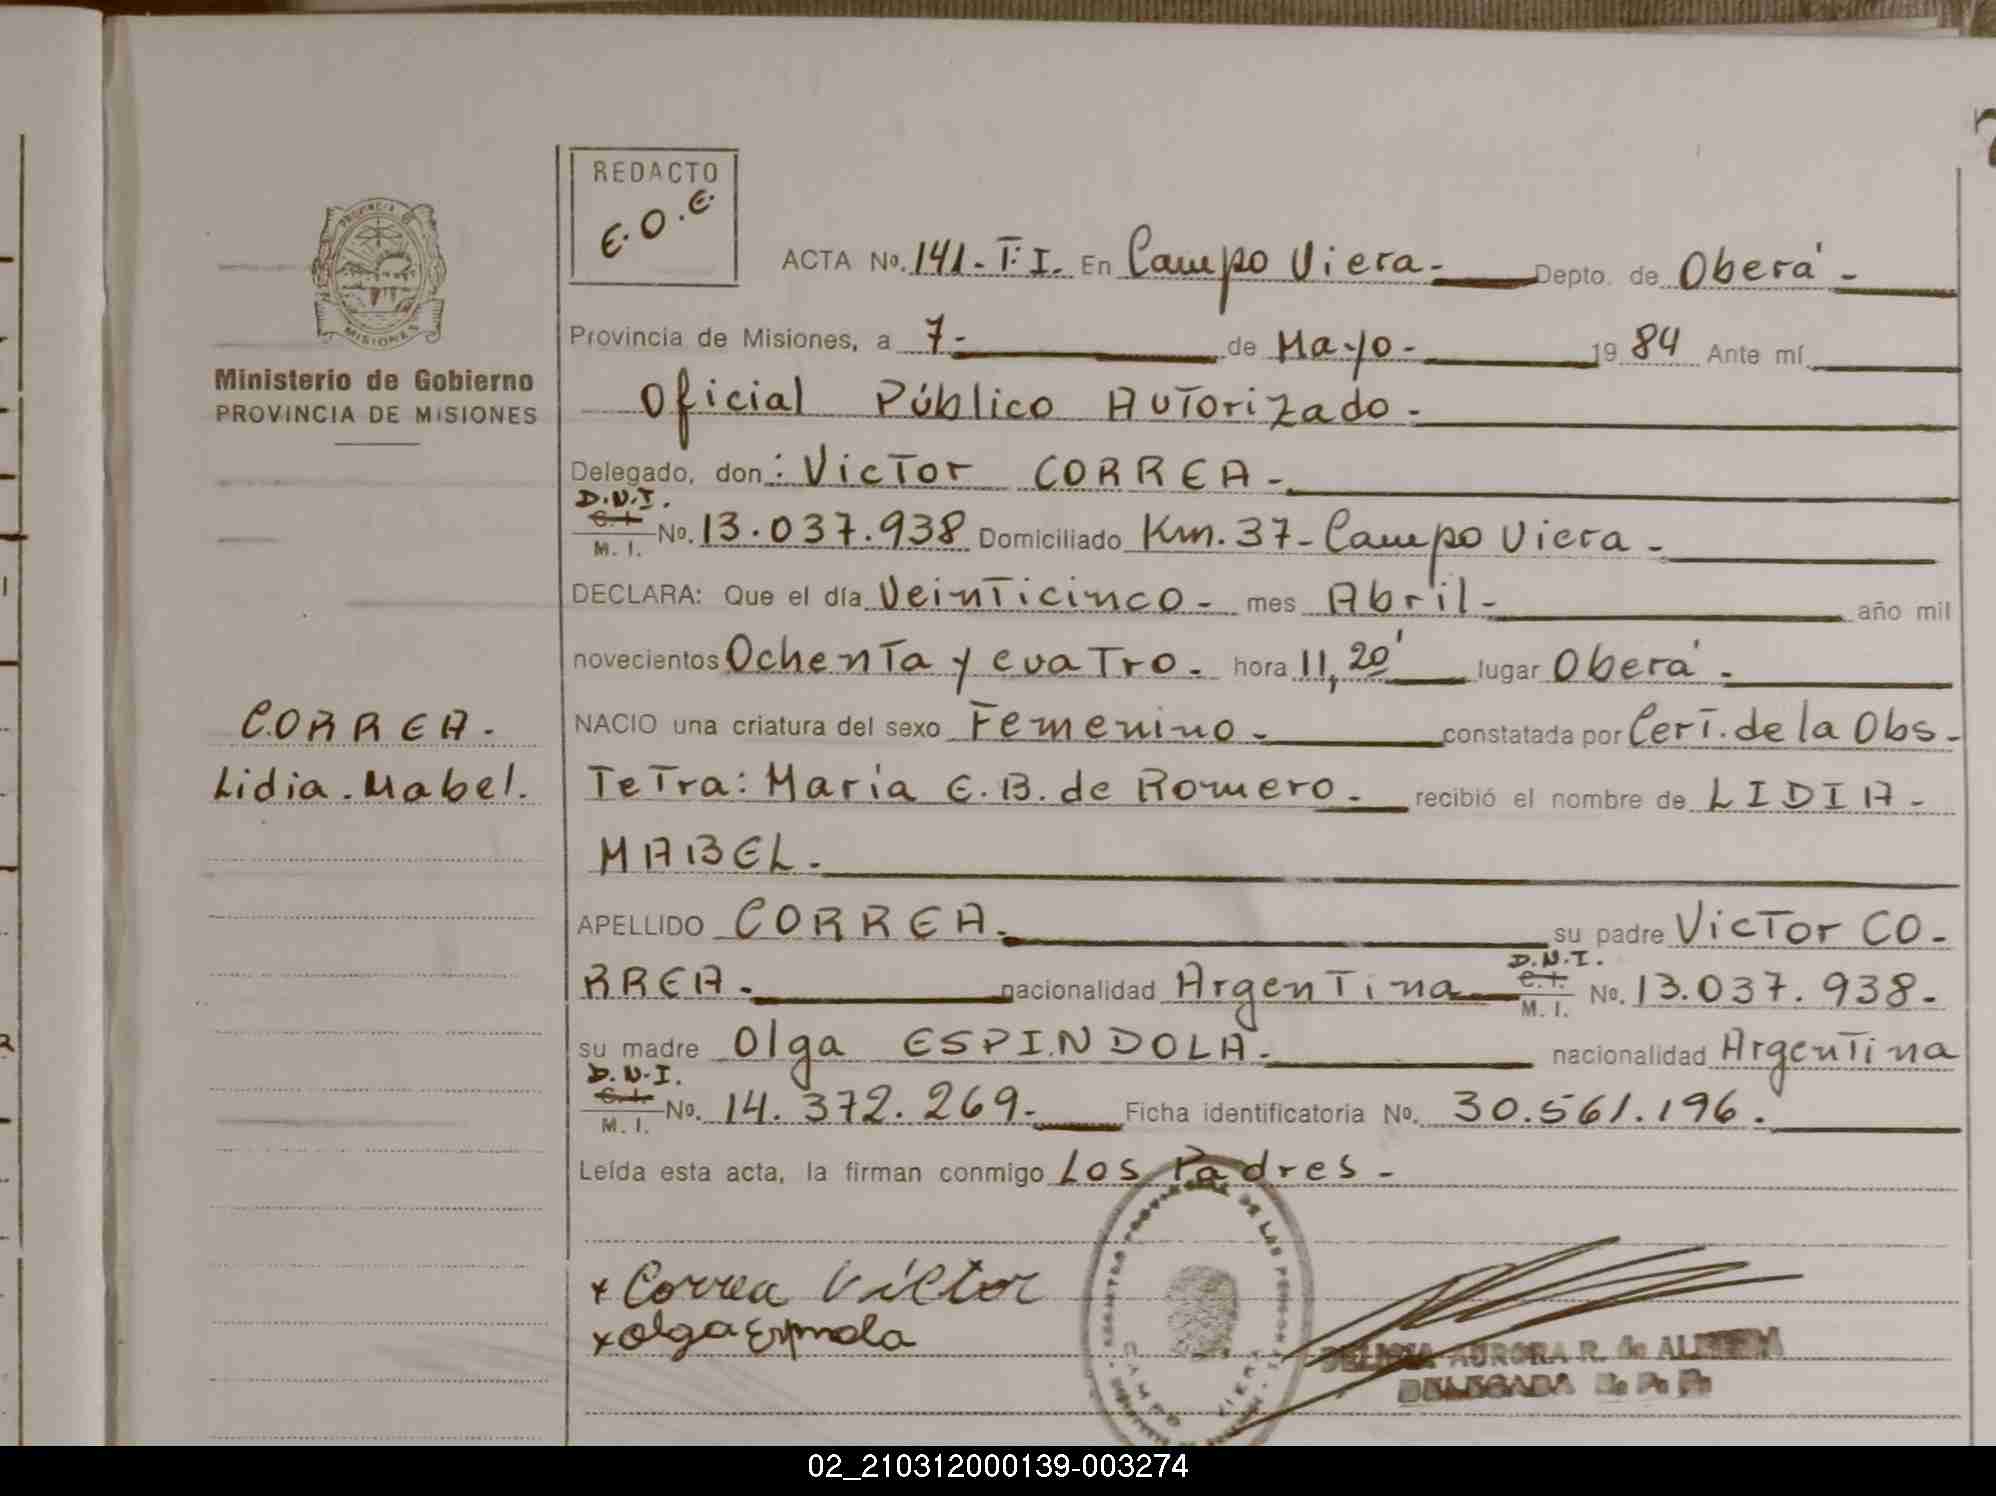 REDACTO
E.O.E.
PROVINCIA DE
MISIONES
Ministerio de Gobierno
PROVINCIA DE MISIONES
ACTA Nº. 141-T:I. En Campo Viera- Depto. de Oberá-
Provincia de Misiones, a 7- de Mayo- 19 84 Ante mí
Oficial Público Autorizado-
Delegado, don: Victor CORREA-
D.N.I.
C.I.
M. I. Nº. 13.037.938 Domiciliado Km. 37-Campo Viera-
DECLARA: Que el día Veinticinco- mes Abril- año mil
novecientos Ochenta y cuatro. hora 11,20' lugar Oberá-
NACIO una criatura del sexo Femenino- constatada por Cert. de la Obs-
tetra: María E.B. de Romero- recibió el nombre de LIDIA-
MABEL-
CORREA-
Lidia.Mabel.
APELLIDO CORREA- su padre Victor CO-
RREA- nacionalidad Argentina D.N.I.
C.I.
M. I. Nº. 13.037.938-
su madre Olga ESPINDOLA- nacionalidad Argentina
D.N.I.
C.I.
M. I. Nº. 14.372.269- Ficha identificatoria Nº. 30.561.196.
Leída esta acta, la firman conmigo Los Padres-
x Correa Víctor
x Olga Espindola
DE LAS PERSONAS
CAMPO VIERA
DELICIA AURORA R. de
DELEGADA
02_210312000139-003274